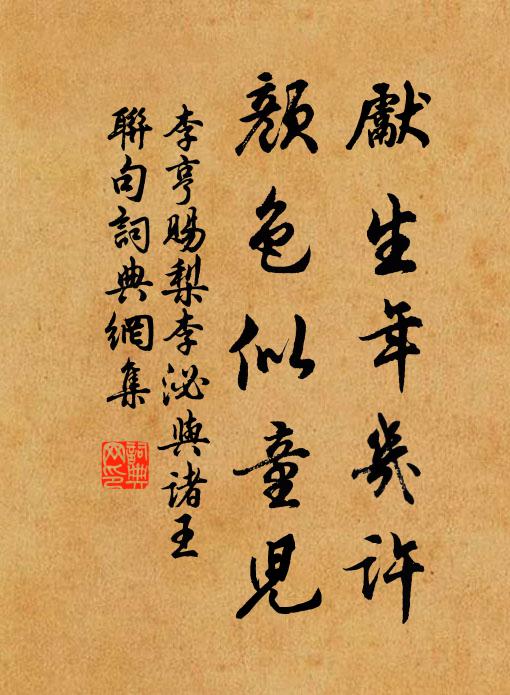 獻生年幾許
顏色似童兒
李亨賜梨李泌與諸王
聯句詞典網集
詞典网印